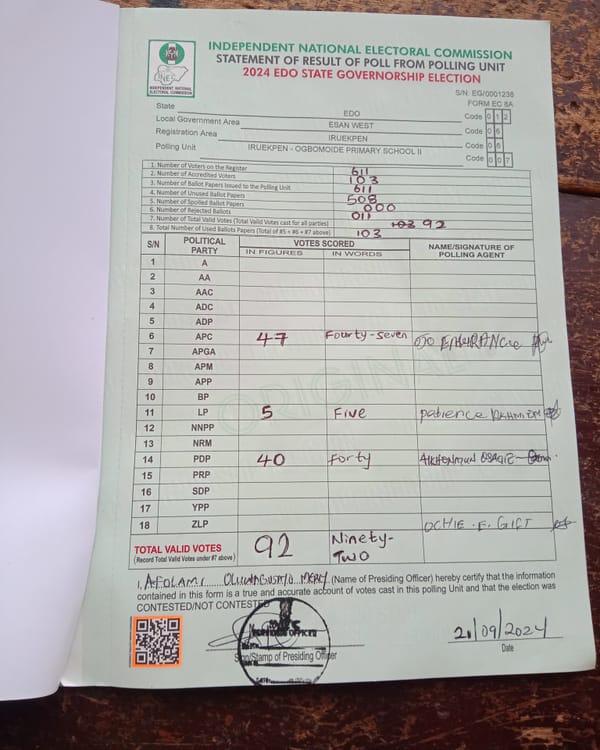 INDEPENDENT NATIONAL ELECTORAL COMMISSION
STATEMENT OF RESULT OF POLL FROM POLLING UNIT
2024 EDO STATE GOVERNORSHIP ELECTION
INEC
INDEPENDENT NATIONAL ELECTORAL COMMISSION
S/N: EG/0001238
FORM EC 8A
State EDO Code 0 1 2
Local Government Area ESAN WEST Code 0 6
Registration Area IRUEKPEN Code 0 6
Polling Unit IRUEKPEN - OGBOMOIDE PRIMARY SCHOOL II Code 0 0 7
1. Number of Voters on the Register 611
2. Number of Accredited Voters 103
3. Number of Ballot Papers Issued to the Polling Unit 611
4. Number of Unused Ballot Papers 508
5. Number of Spoiled Ballot Papers 000
6. Number of Rejected Ballots 011
7. Number of Total Valid Votes (Total Valid Votes cast for all parties) 103 92
8. Total Number of Used Ballots Papers (Total of #5 + #6 + #7 above) 103
S/N POLITICAL PARTY VOTES SCORED NAME/SIGNATURE OF POLLING AGENT
IN FIGURES IN WORDS
1 A
2 AA
3 AAC
4 ADC
5 ADP
6 APC 47 Fourty-seven
7 APGA
8 APM
9 APP
10 BP
11 LP 5 Five patience
12 NNPP
13 NRM
14 PDP 40 Forty OSAGIE
15 PRP
16 SDP
17 YPP
18 ZLP OCHIE .F. GIFT
ORIGINAL
TOTAL VALID VOTES 92 Ninety-Two
(Record Total Valid Votes under #7 above)
I, AFOLAMI MERCY (Name of Presiding Officer) hereby certify that the information
contained in this form is a true and accurate account of votes cast in this polling Unit and that the election was
CONTESTED/NOT CONTESTED
PRESIDING OFFICER
DATE
Sign/Stamp of Presiding Officer
21/09/2024
Date